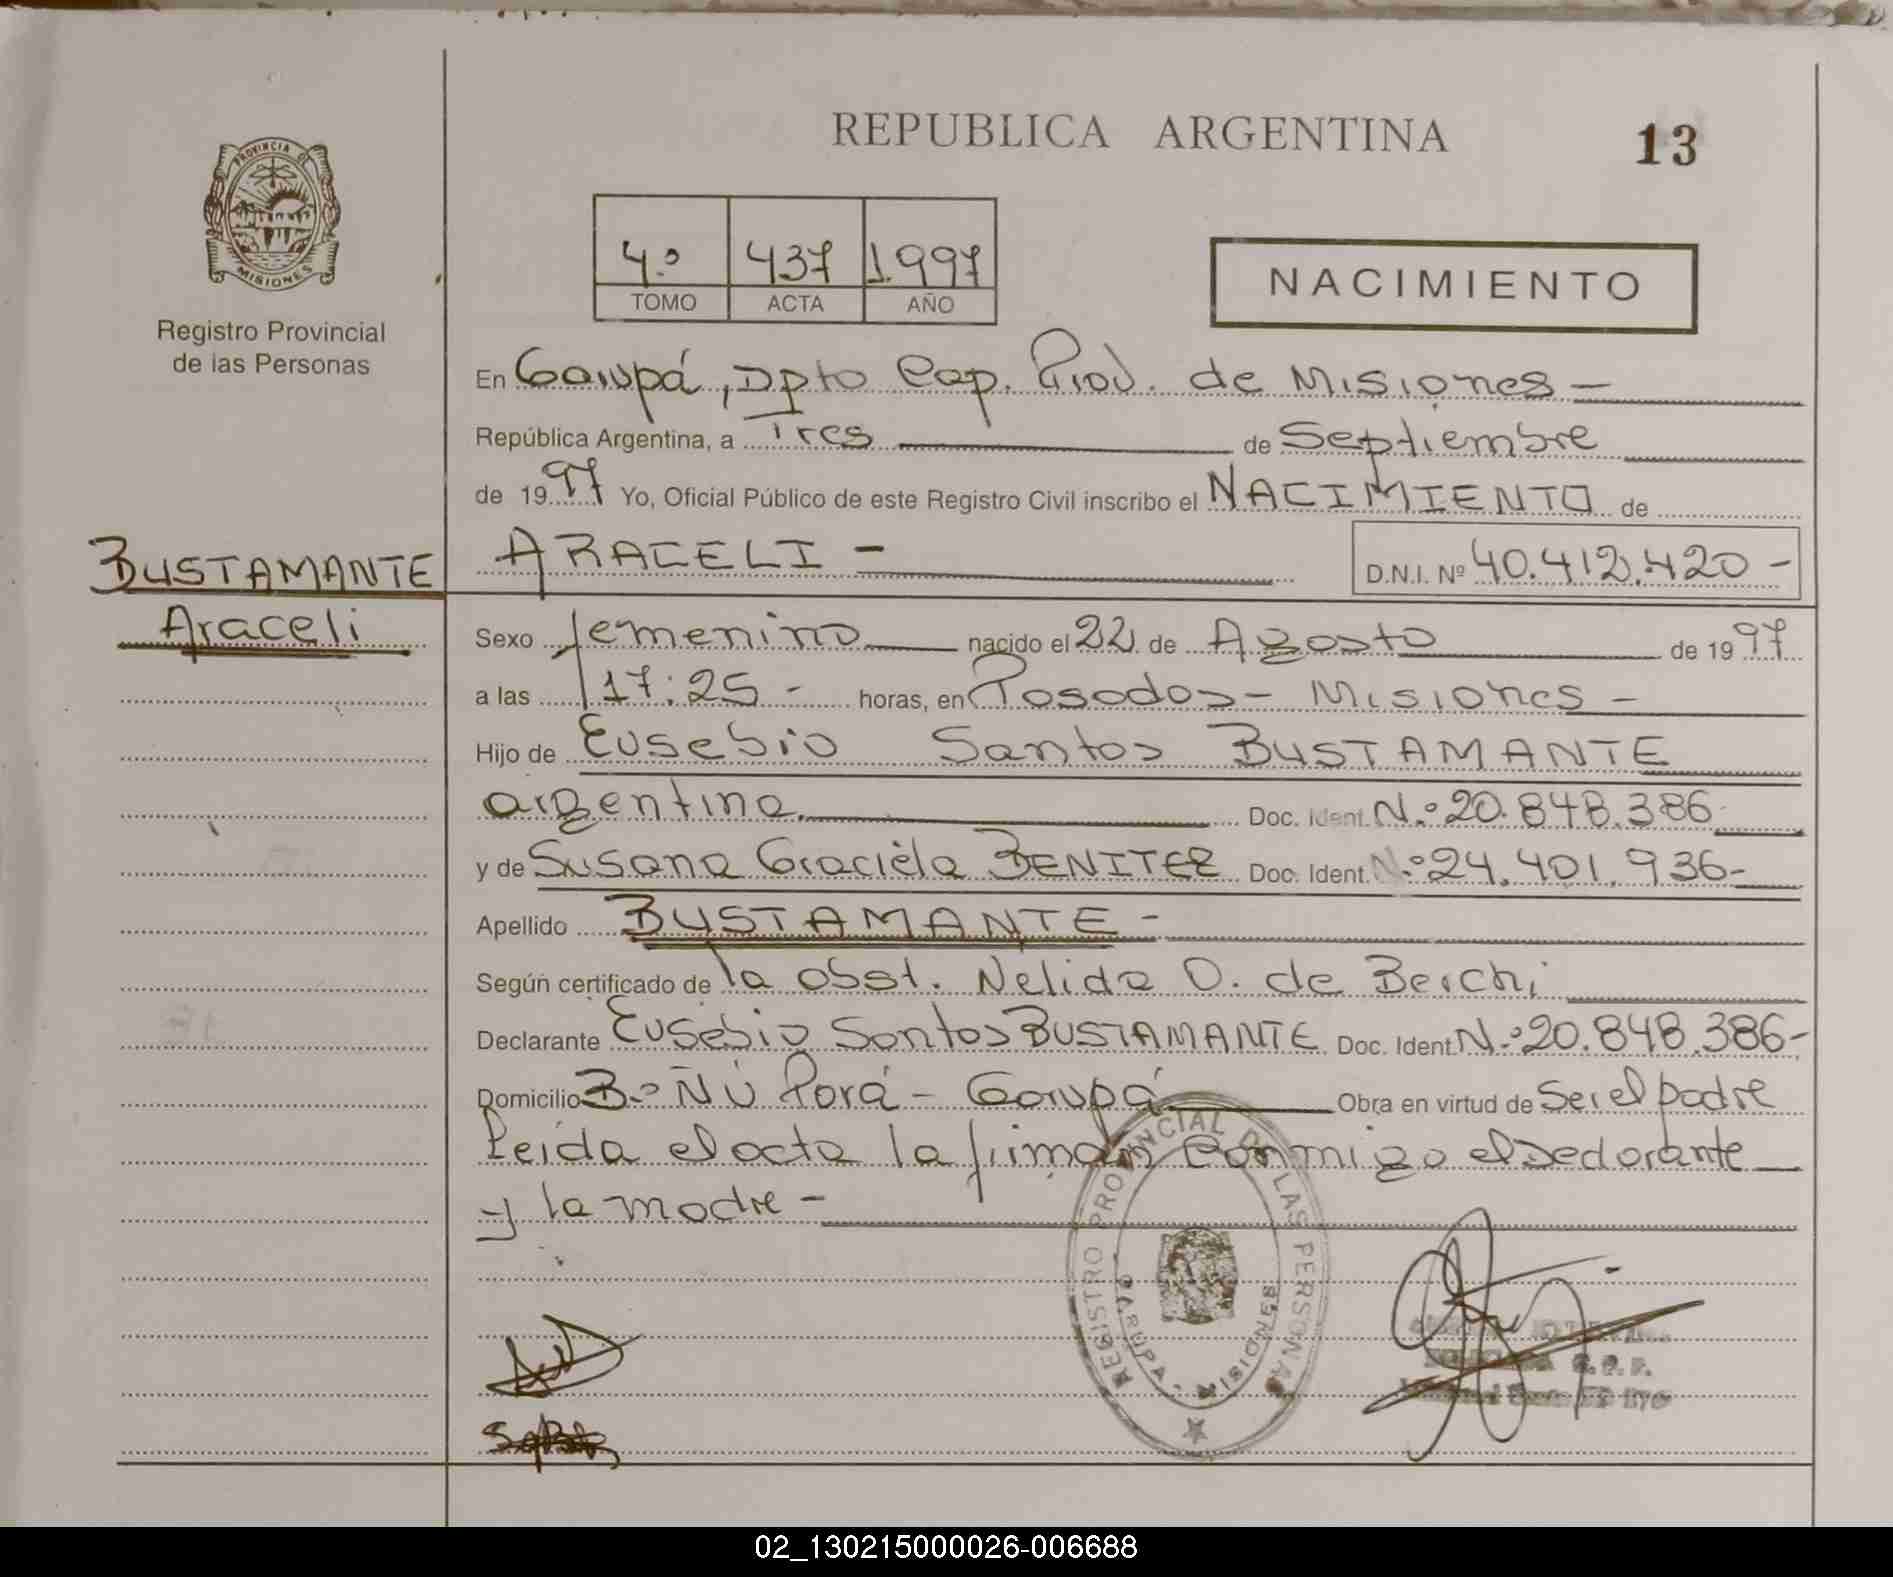 REPUBLICA ARGENTINA
13
PROVINCIA D
MISIONES
Registro Provincial
de las Personas
4.º 437 1.997
TOMO ACTA AÑO
NACIMIENTO
En Garupá, Dpto Cap. Prov. de Misiones —
República Argentina, a Tres de Septiembre
de 1997 Yo, Oficial Público de este Registro Civil inscribo el NACIMIENTO de
BUSTAMANTE
Araceli
ARACELI - D.N.I. Nº 40.412.420 -
Sexo femenino nacido el 22 de Agosto de 1997
a las 17:25 - horas, en Posadas - Misiones -
Hijo de Eusebio Santos BUSTAMANTE
argentino. Doc. Ident. N.º 20.848.386
y de Susana Graciela BENITEZ Doc. Ident. N.º 24.401.936-
Apellido BUSTAMANTE -
Según certificado de la obst. Nelida O. de Berchi
Declarante Eusebio Santos BUSTAMANTE Doc. Ident N.º 20.848.386-
Domicilio B.º Ñú Porá - Garupá Obra en virtud de Ser el padre
Leida el acta la firman conmigo el Declarante
y la madre -
REGISTRO PROVINCIAL DE LAS PERSONAS
GARUPA - MISIONES
02_130215000026-006688